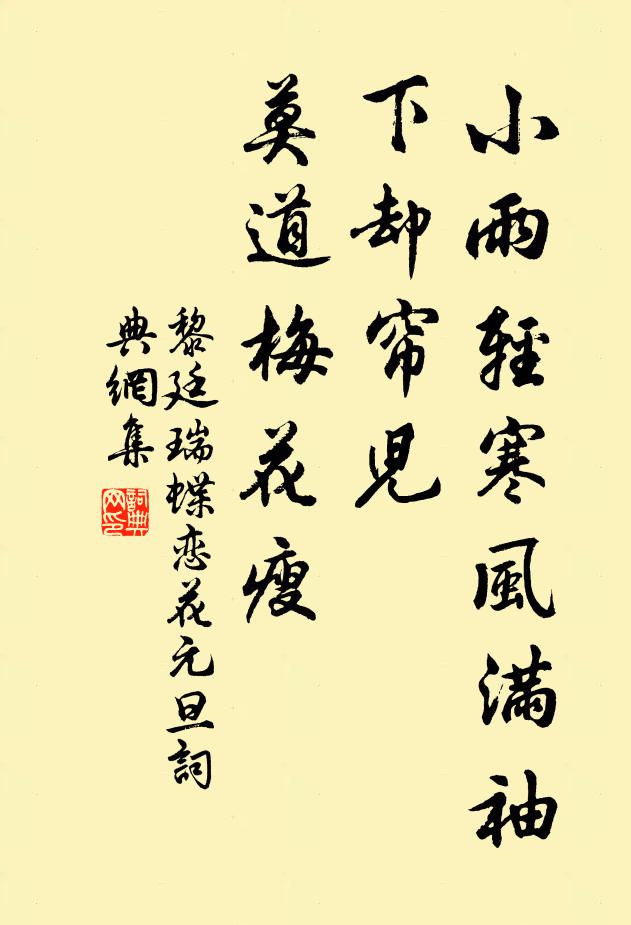 小雨輕寒風滿袖
下却帘児
莫道梅花瘦
黎廷瑞蝶恋花元旦詞
典網集
詞典
网印